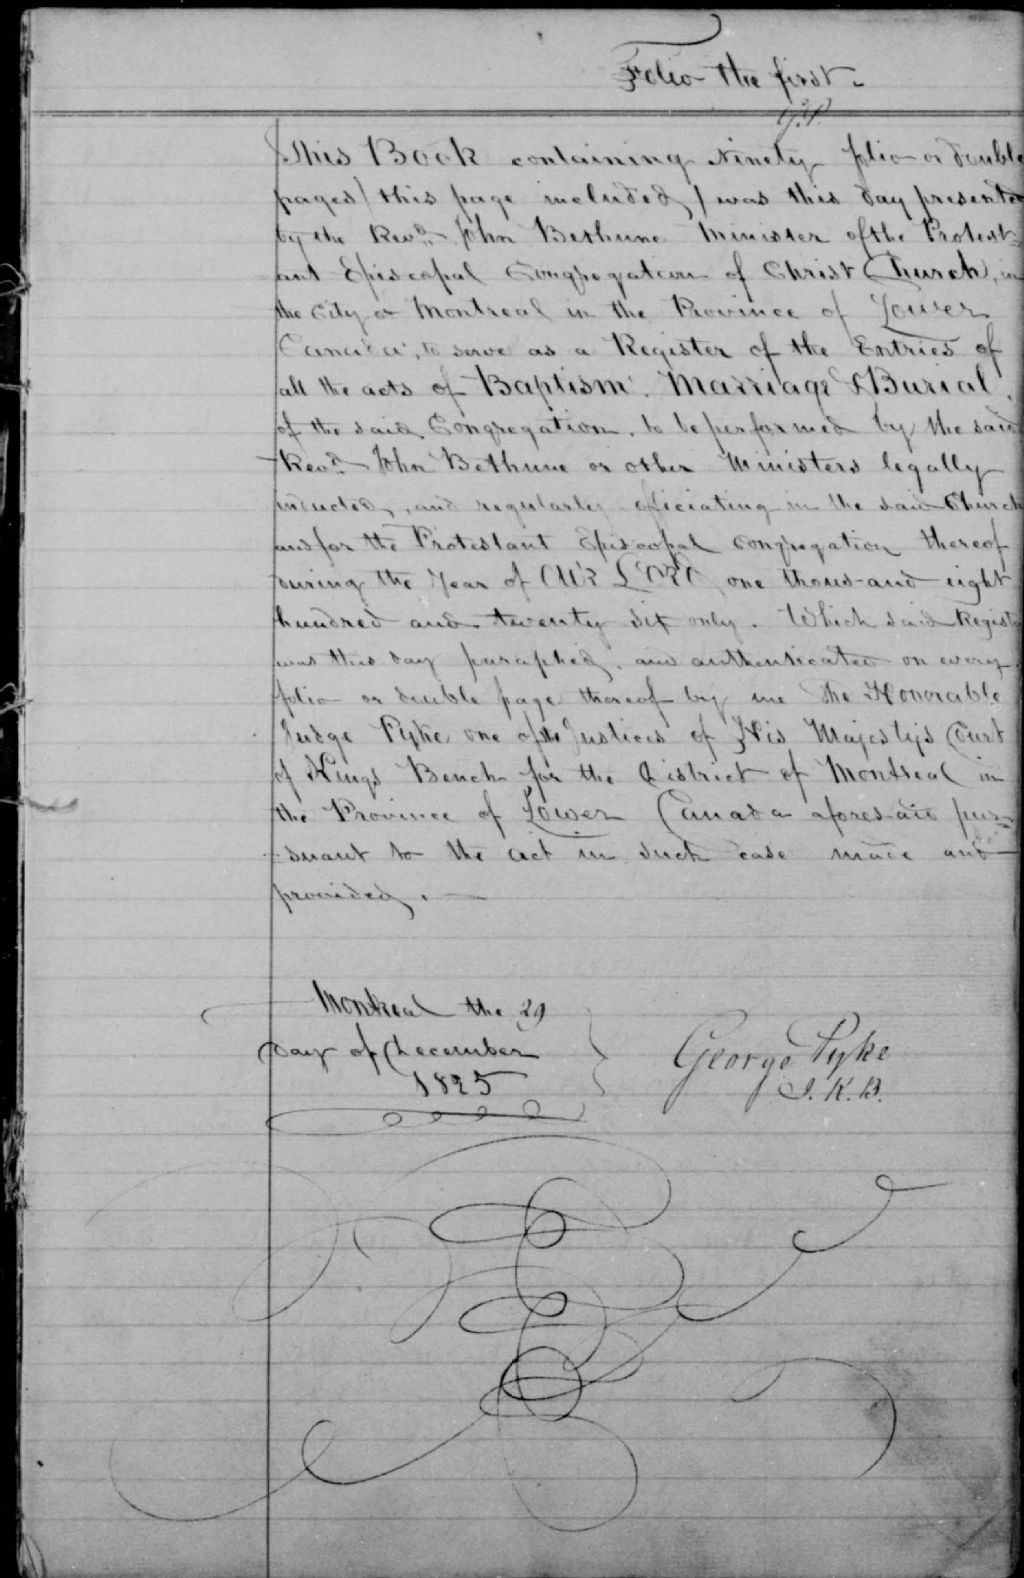 Folio the first.
G.P.
This Book containing Ninety folio or double
pages / this page included / was this day presented
by the Revd. John Bethune Minister of the Protest-
ant Episcopal Congregation of Christ Church, in
the City of Montreal in the Province of Lower
Canada, to serve as a Register of the Entries of
all the acts of Baptism, Marriage & Burial,
of the said Congregation, to be performed by the said
Revd. John Bethune or other Ministers legally
inducted, and regularly officiating in the said Church
and for the Protestant Episcopal Congregation thereof
during the Year of OUR LORD one thousand eight
hundred and twenty six only. Which said Register
was this day paraphed, and authenticated on every
folio or double page thereof by me The Honorable
Judge Pyke one of the Justices of His Majesty's Court
of Kings Bench for the District of Montreal in
the Province of Lower Canada aforesaid pur-
suant to the act in such case made and
provided.
Montreal the 29
day of December
1825
George Pyke
J. K. B.